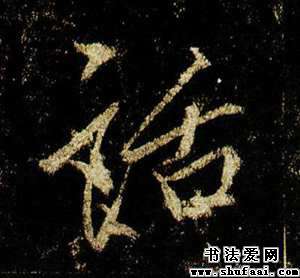 话
书法爱网
www.shufaai.com